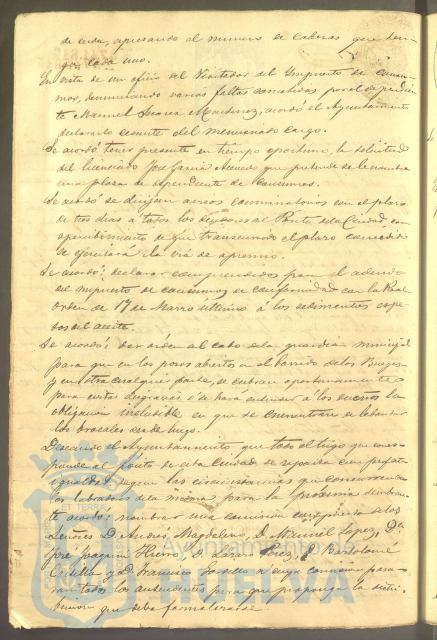 de cerda, apresando el número de cabezas que ten-
ga cada uno.
En vista de un oficio del Visitador del Impuesto de Consu-
mos, denunciando varias faltas cometidas por el dependien-
te Manuel Martinez, acordó el Ayuntamiento
declararlo cesante del mencionado cargo.
Se acordó tener presente en tiempo oportuno, la solicitud
del licenciado José Garcia que pretende se le nombre
una plaza de dependiente de Consumos.
Se acordó se dirijan avisos conminatorios con el plazo
de tres dias a todos los deudores al Pósito de la Ciudad, con
apercibimiento de que transcurrido el plazo concedido
se ejercitará la via de apremio.
Se acordó: declarar comprendidos para el adeudo
del impuesto de consumos, de conformidad con la Real
orden de 17 de Marzo último a los sedimentos
del aceite.
Se acordó: dar orden al Cabo de la guardia municipal
para que en los pozos abiertos en el barrido de los
y en otra cualquier parte, se cubran oportunamente
para evitar desgracias é se haga entender á los dueños la
obligacion ineludible en que se encuentran de levantar
los brocales desde luego.
Deseando el Ayuntamiento que todo el trigo que corres-
ponde al Pósito de esta Ciudad se reparta con perfecta
igualdad segun las circunstancias que concurran en
los labradores de la misma para la próxima sementera
te acordó: nombrar una comision compuesta de los
Señores D. Andrés Magdaleno, D. Manuel Lopez, D.
José Joaquin Hierro, D. Perez, D. Bartolomé
y D. Francisco á cuya comision pasa-
ran todos los antecedentes para que proponga la distri-
bucion que deba formalizarse.
ET TERRAE
Ayuntamiento de
HUELVA